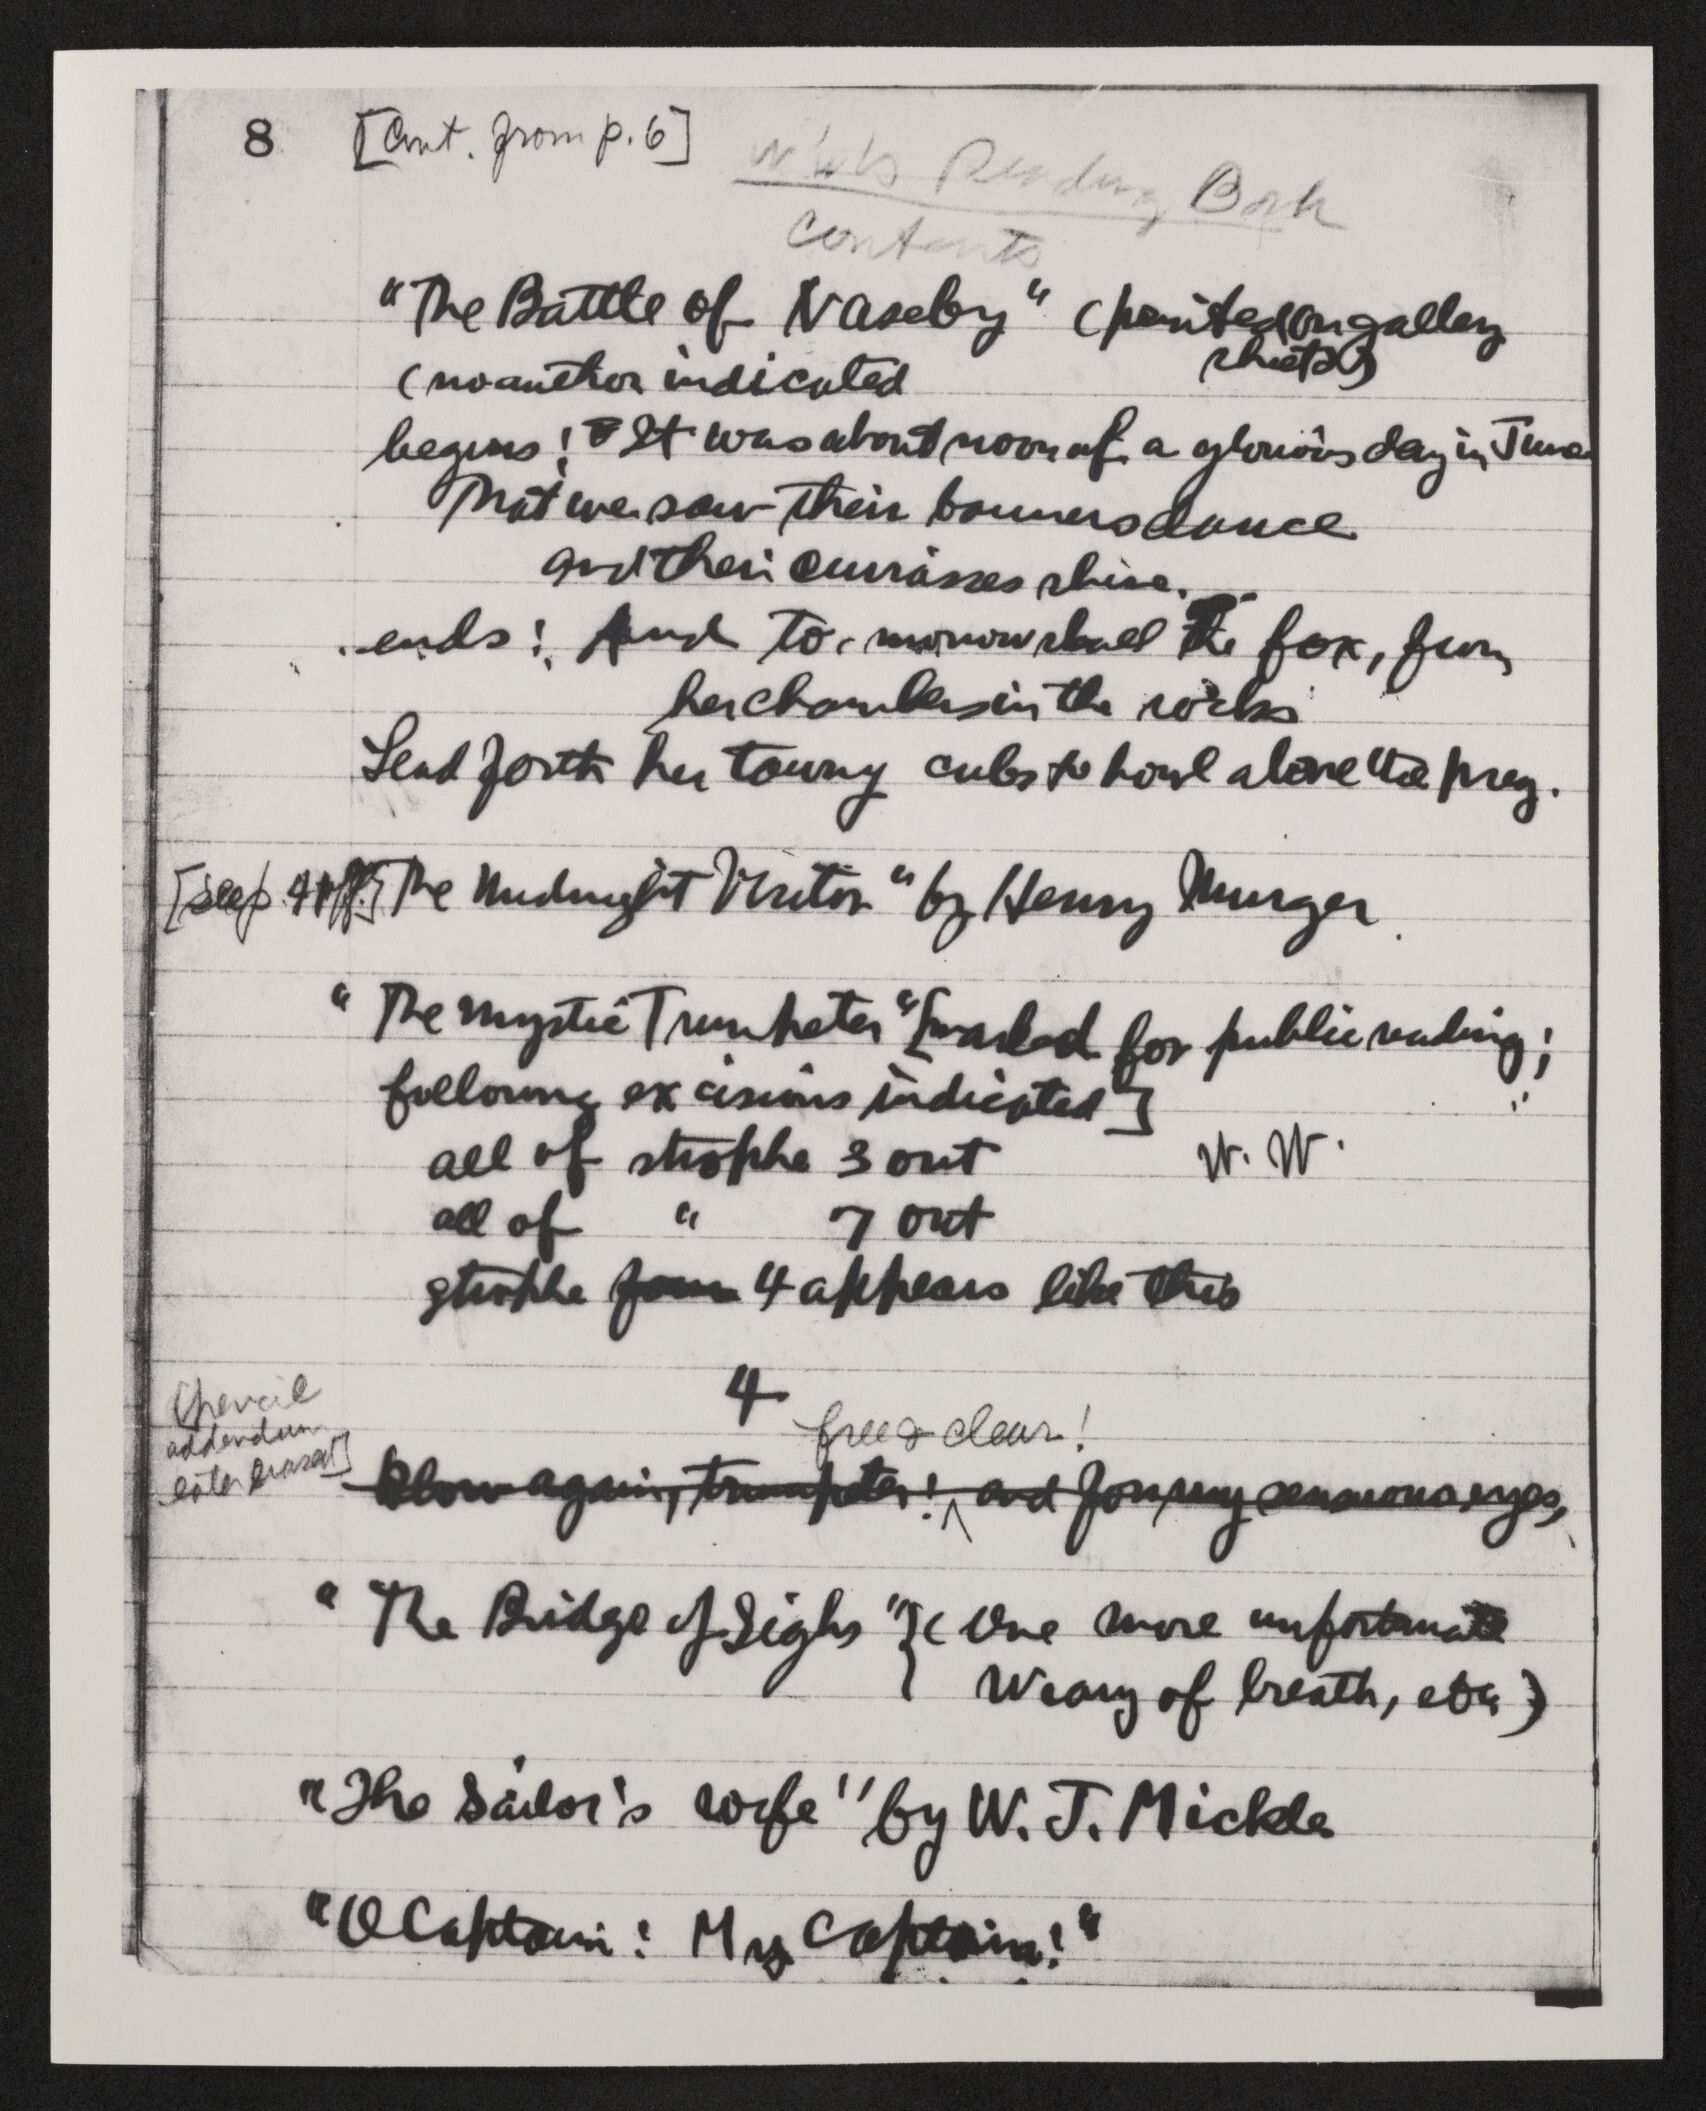 8 [Cont. from p. 6]
WW's Reading Book
contents
"The Battle of Naseby" (printed (on galley
sheets)
(no author indicated
begins: It was about noon of a glorious day in June
That we saw their banners dance
and their cuirasses shine.
ends: And to-morrow shall the fox, from
her chambers in the rocks
Send forth her tawny cubs to howl above the prey.
[see p. The Midnight Visitor" by Henry Murger
"The Mystic Trumpeter" [marked for public reading;
following excisions indicated]
all of strophe 3 out W. W.
all of " 7 out
strophe four 4 appears like this
4
[pencil
addendum
later erased]
free & clear!
Blow again, trumpeter! ^ and for my sensuous eyes,
"The Bridge of Sighs" } (One more unfortunate
Weary of breath, etc.)
"The Sailor's wife" by W. J. Mickle
"O Captain! My Captain!"